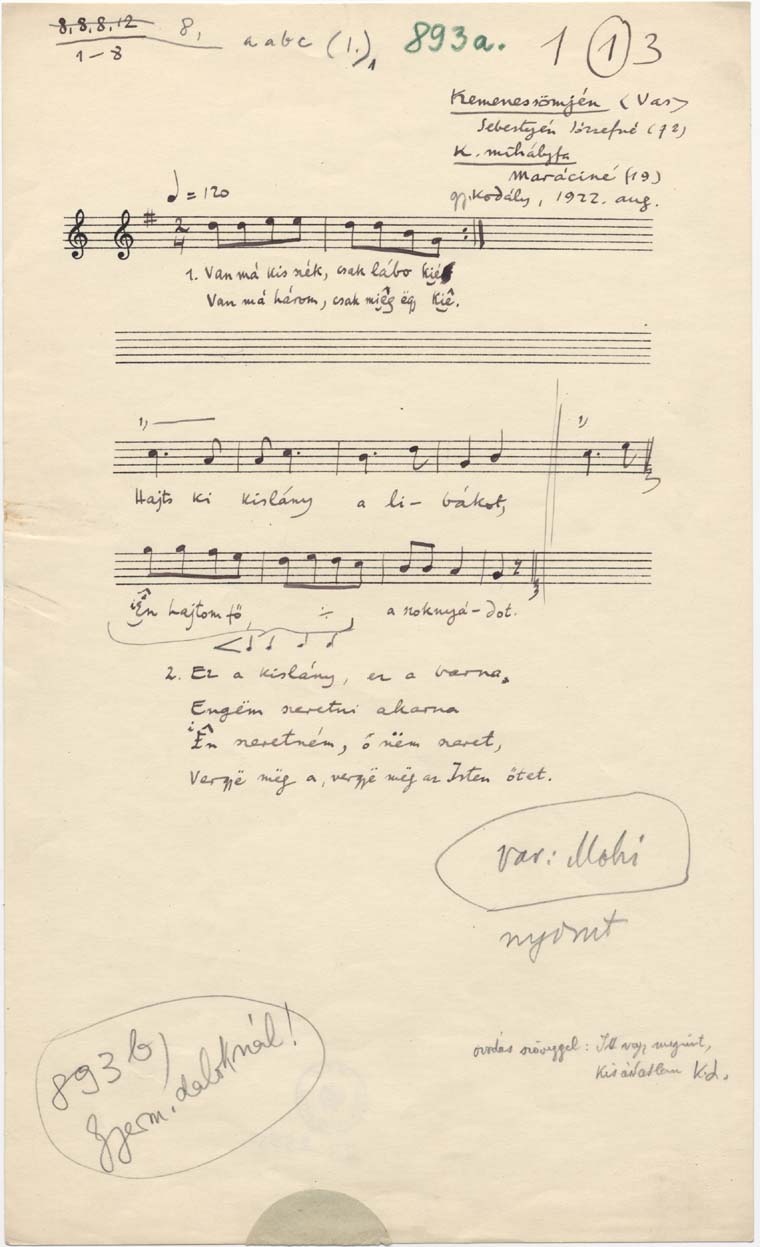 8,8,8,12 8, a abc (1.) 893a. 1 1 3
1–8
Kemenessömjén (Vas)
Sebestyén Józsefné (72)
K. mihályfa
Maráciné (19)
gy. Kodály, 1922. aug.
= 120
1. Van má kis szék, csak lábo kié
Van má három, csak mieg ëgy kiê.
1)
1)
Hajts ki kislány a li – bákot,
Ên hajtom fö, ÷ a soknyá – dot.
2. Ez a kislány, ez a barna,
Engëm szeretni akarna
Ên szeretném, ő nëm szeret,
Vergyë mëg a, vergyë mëg az Isten őtet.
var: Mohi
nyomt
893 b)
Gyerm. daloknál!
óvodás szöveggel: Itt vagy megint,
K.L.